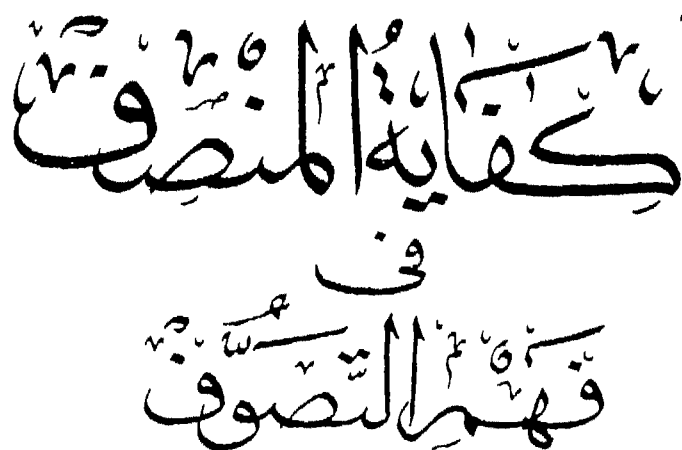 كِفَايَةُ المنْصِف
فى
فَهْمِ التَّصَوُّف